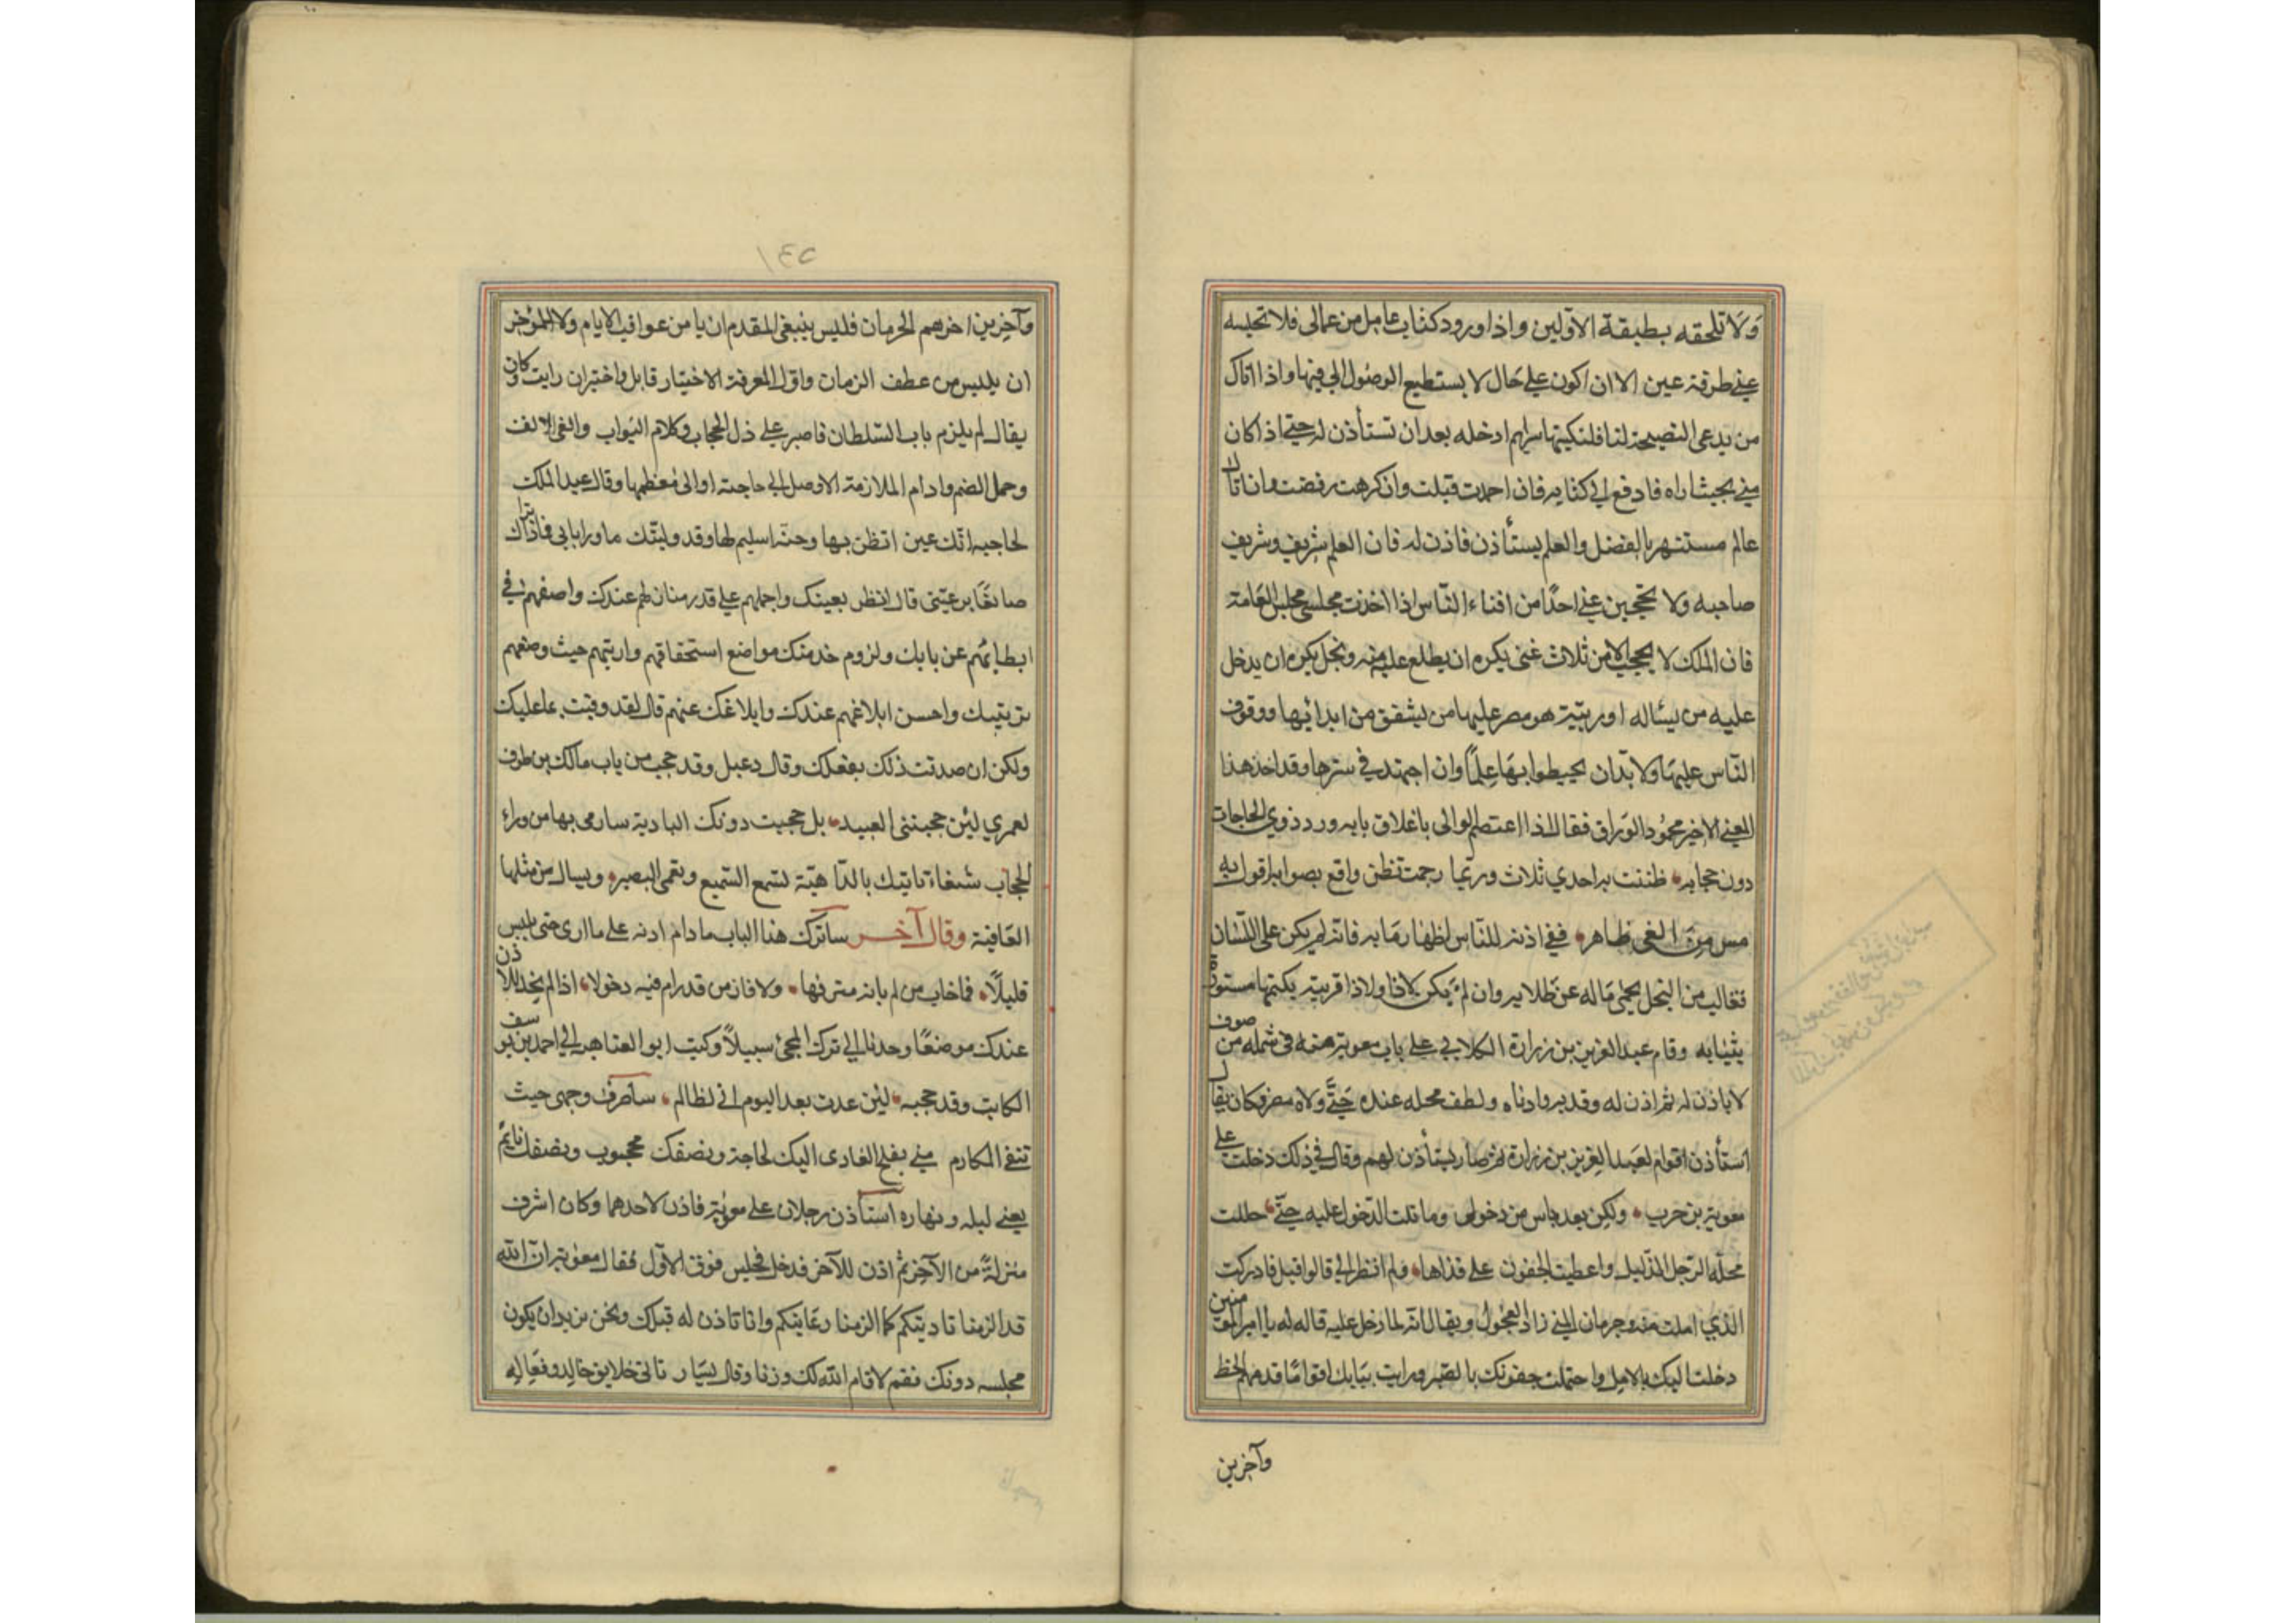 وَلَا تلحقه بطبقة الاوّلين واذا ورود كتاب عامل من عمالى فلا تحبسه
عنى طرفة عين الا ان اكون على حال لا يستطيع الوصول الىّ فيها واذا اتاك
من يدعى النصيحة لنا فلتكتبها سرا ثم ادخله بعد ان تستأذن له حتى اذا كان
منى بحيث اراه فادفع الى كتابه فان احمدت قبلت وان كرهت رفضت وان اتاك
عالم مستشهر بالفضل والعلم يستأذن فاذن له فان العلم شريف وشريف
صاحبه ولا تحجبن عنى احدًا من افناء النّاس اذا اخذت مجلسى مجلس العامة
فان الملك لا يحجب الا من ثلاث غنى يكره ان يطلع عليه منه وبخل يكره ان يدخل
عليه من يسئاله او ريبة هو مصر عليها من يشفق من ابدائها ووقوف
النّاس عليها ولا بدّ ان يحيطوا بها علمًا وان اجتهد فى سترها وقد اخذ هذا
المعنى الاخير محمُود الورّاق فقال اذا اعتصم الوالى باغلاق بابه ورد ذوي الحاجات
دون حجابه • ظننت به احدي ثلاث وربما رجمت بظن واقع بصوابه اقول به
مس من الغى ظاهر • ففى اذنه للنّاس اظهار ما به فانه لم يكن على اللّسان
فغالب من البخل يحمى ماله عن طلابه وان لم يكن لا ذا ولا ذا فريبة يكتمها مستورة
بثيابه وقام عبد العزيز بن زرارة الكلابي على باب معوية سنة فى شملة من صوف
لا ياذن له ثم اذن له وقد به وادناه ولطف محله عنده حَتَّى ولاه مصر فكان يقال
استأذن اقوام لعبد العزيز بن زرارة ثم صار يستأذن لهم وقال فى ذلك دخلت على
معوية بن حرب • ولكن بعد ياس من دخولى وما نلت الدّخول عليه حتّى • حللت
محلّه الرّجل الذّليل واعطيت الجفون على قذاها • ولم انظر الى قالوا قيل فادركت
الذي املت منه وحرمان المنى زاد العجُولُ ويقال انّه لما دخل عليه قال له يا امير المؤمنين
دخلت اليك بالامل واحتملت جفونك بالصّبر ورايت ببابك اقوامًا قدمهم الحظ
وآخرين
١٤٥
وآخرين اخرهم الحرمان فليس ينبغى للمقدم ان يا من عواقب الايام ولا المؤخر
ان يلبس من عطف الزمان واوّل المعرفة الاختيار قابل واختبر ان رايت وكان
يقال لم يلزم باب السّلطان فاصبر على ذل الحجاب وكلام البوّاب والغى الانف
وحمل الضم وادام الملازمة الا وصل الى حاجته او الى معظمها وقال عبد الملك
لحاجبه انّك عين انظر بها وجنّة استليم لها وقد ولّيتك ما ورا بابى فماذا تراك
صانعًا برعيّتى قال انظر بعينك واحملهم على قدر منازلهم عندك واصفهم فى
ابطائهم عن بابك ولزوم خدمتك مواضع استحقاقهم وارتبهم حيث وضعهم
ترتيبك واحسن ابلاغهم عندك وابلاغك عنهم قال لقد وفيت بما عليك
ولكن ان صدقت ذلك بفعلك وقال دعبل وقد حجب من باب مالك بن طوق
لعمري لئن حجبتنى العبيد • بل حجبت دونك البادية سارمى بها من وراء
الحجاب شنعاء تاتيك بالدّاهيّة تسمع السّميع وتعمى البصير • ويسال من مثلها
العَافية وقال آخر ساترك هذا الباب ما دام اذنه على ما ارى حتى يلين
قليلًا • فما خاب من لم ياته مترفها • ولا فاز من قد رام فيه دخولا • اذا لم نجد للاذن
عندك موضعًا وجدنا الى ترك المجئ سبيلاً وكتب ابو العتاهيه الى احمد بن يوسف
الكاتب وقد حجبه • لئن عدت بعد اليوم انى لظالم • ساصرف وجهى حيث
تنفى المكارم منى يفلح الغادى اليك لحاجة ونصفك محجوب ونصفك نايم
يعنى ليله ونهاره استأذن رجلان على معوية فاذن لاحدهما وكان اشرف
منزلةً من الآخر ثم اذن للآخر فدخل فجلس فوق الاوّل فقال معوية ان الله
قد الزمنا تاديتكم كما الزمنا رعايتكم وانا تاذن له قبلك ونحن نريد ان يكون
مجلسه دونك فقم لا قام الله لك وزنا وقال بشار تاتى خلايق خالد وفعاله